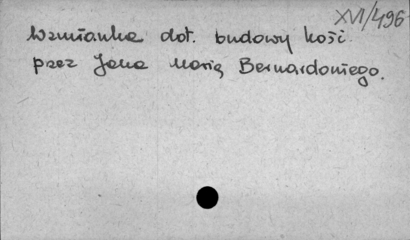 XVI/496
Wzmianka dot. budowy kość.
przez Jana Marią Bernardoniego.